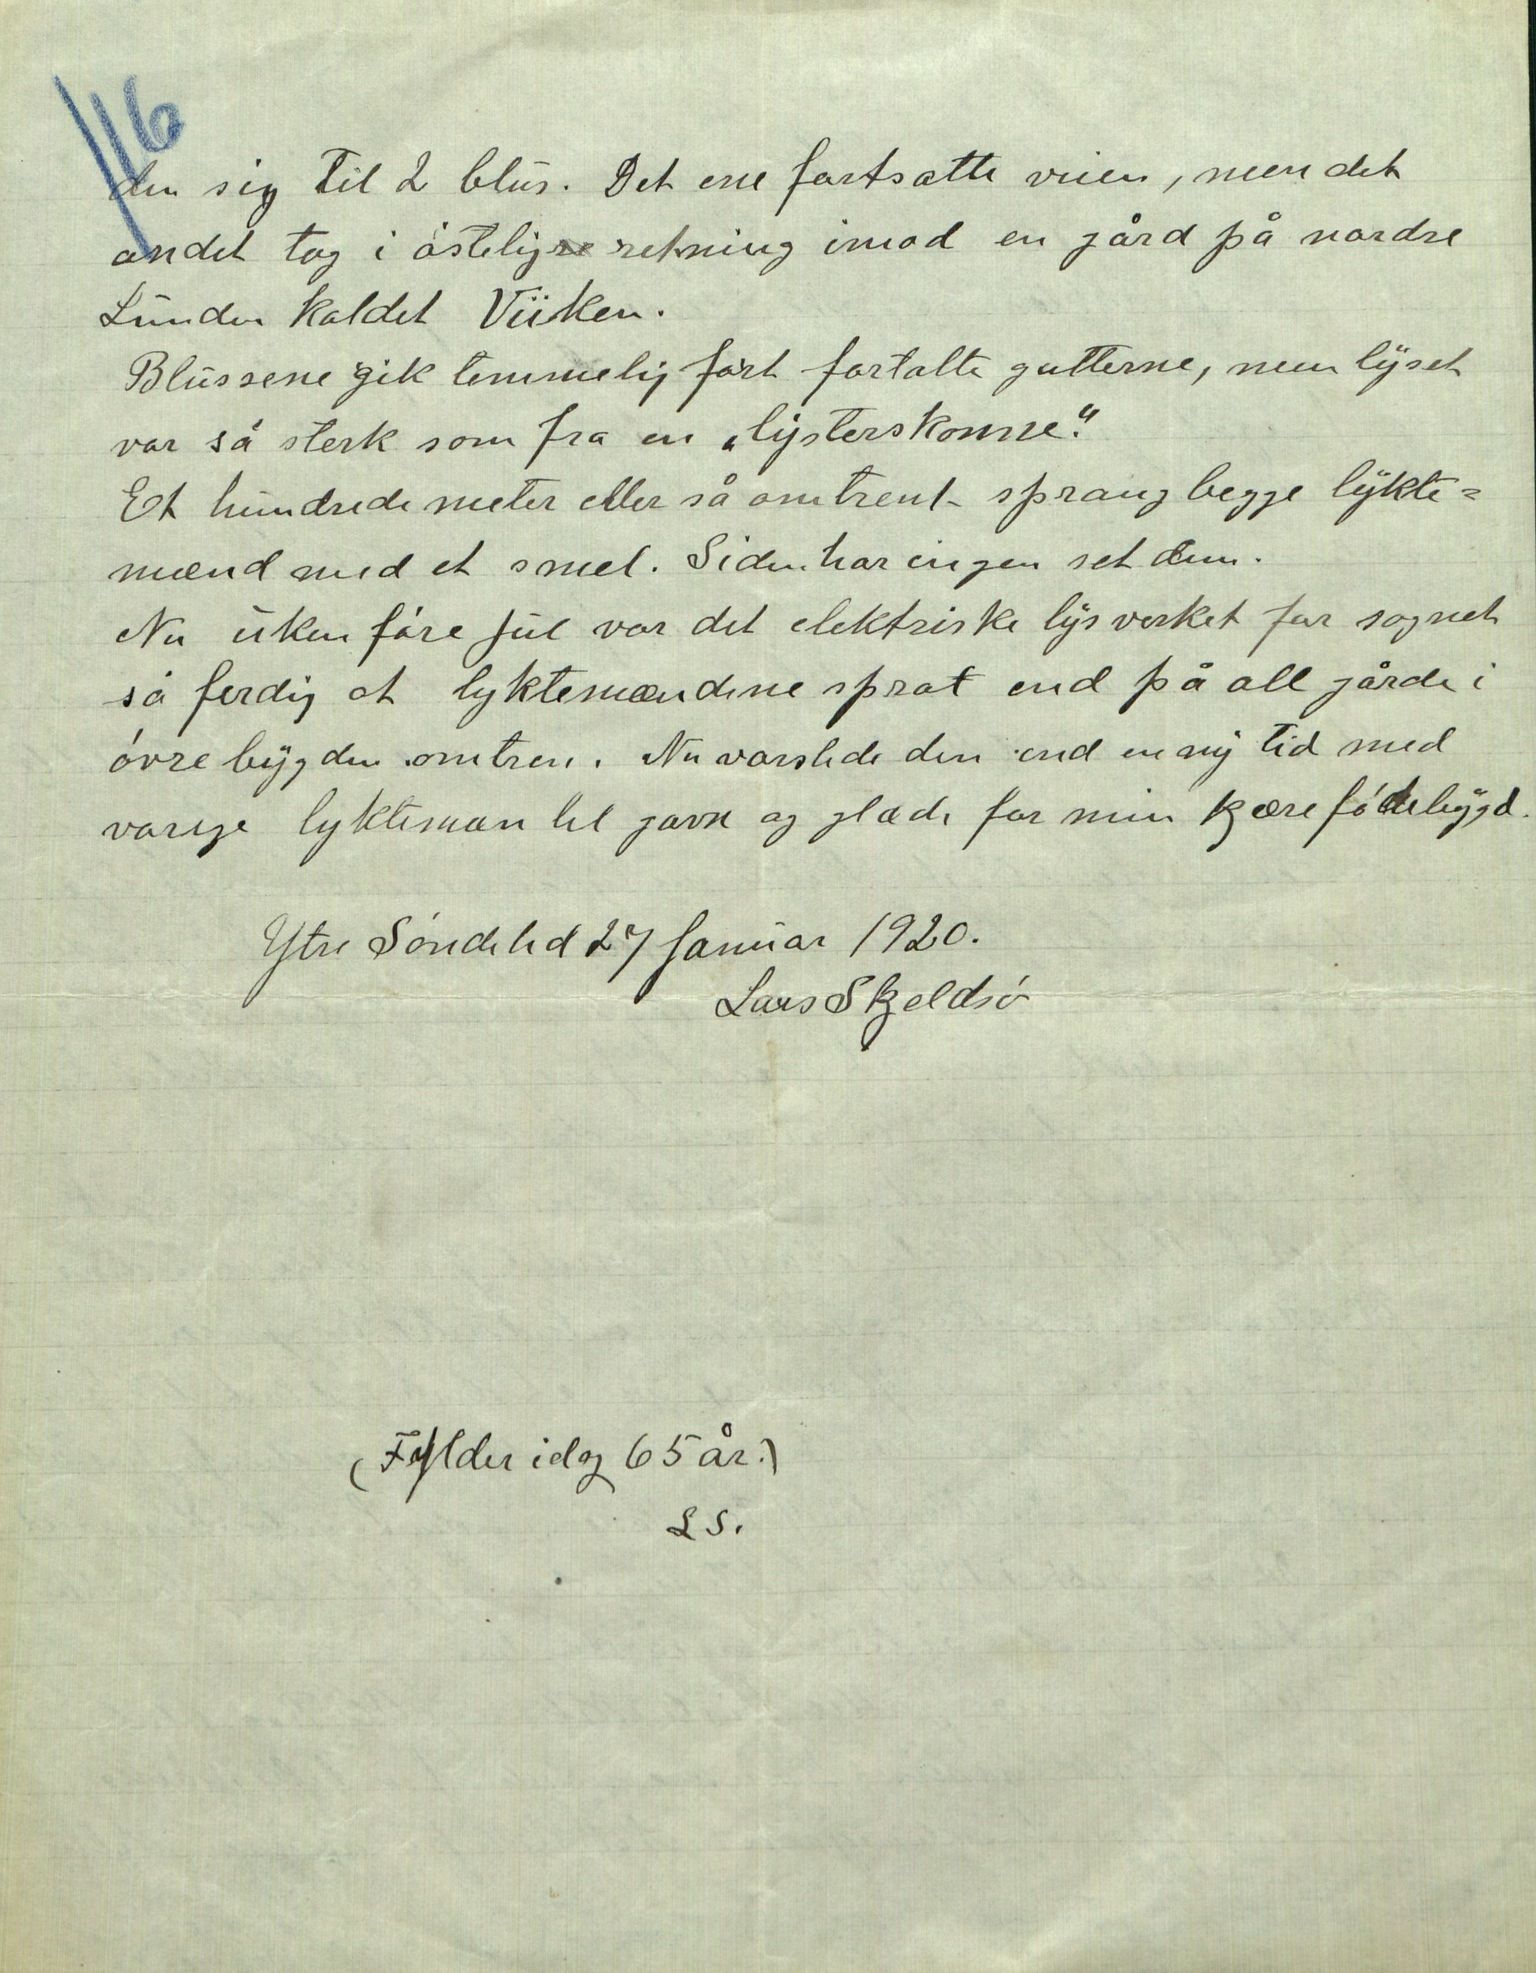 116
den sig til 2 blus. Det ene fortsatte veien, men det
andet tog i östelig retning imod en gård på nordre
Lunden kaldet Viiken.
Blussene gik temmelig fort fortalte gutterne, men lyset
var så sterk som fra en „lysterskonne".
Et hundrede meter eller så omtrent sprang begge lykte=
mænd med et smel. Siden har ingen set dem.
Nu uken före jul var det elektriske lysverket for sognet
så ferdig at lyktemændene sprat end på all gårde i
övre bygden omtren. Nu varslede den end en ny tid med
varige lyktemæn til gavn og glæde for min kjære födebygd.
Ytre Söndeled 27 Januar 1920.
Lars Skjeldsö
(Fylder idag 65 år.)
L S.